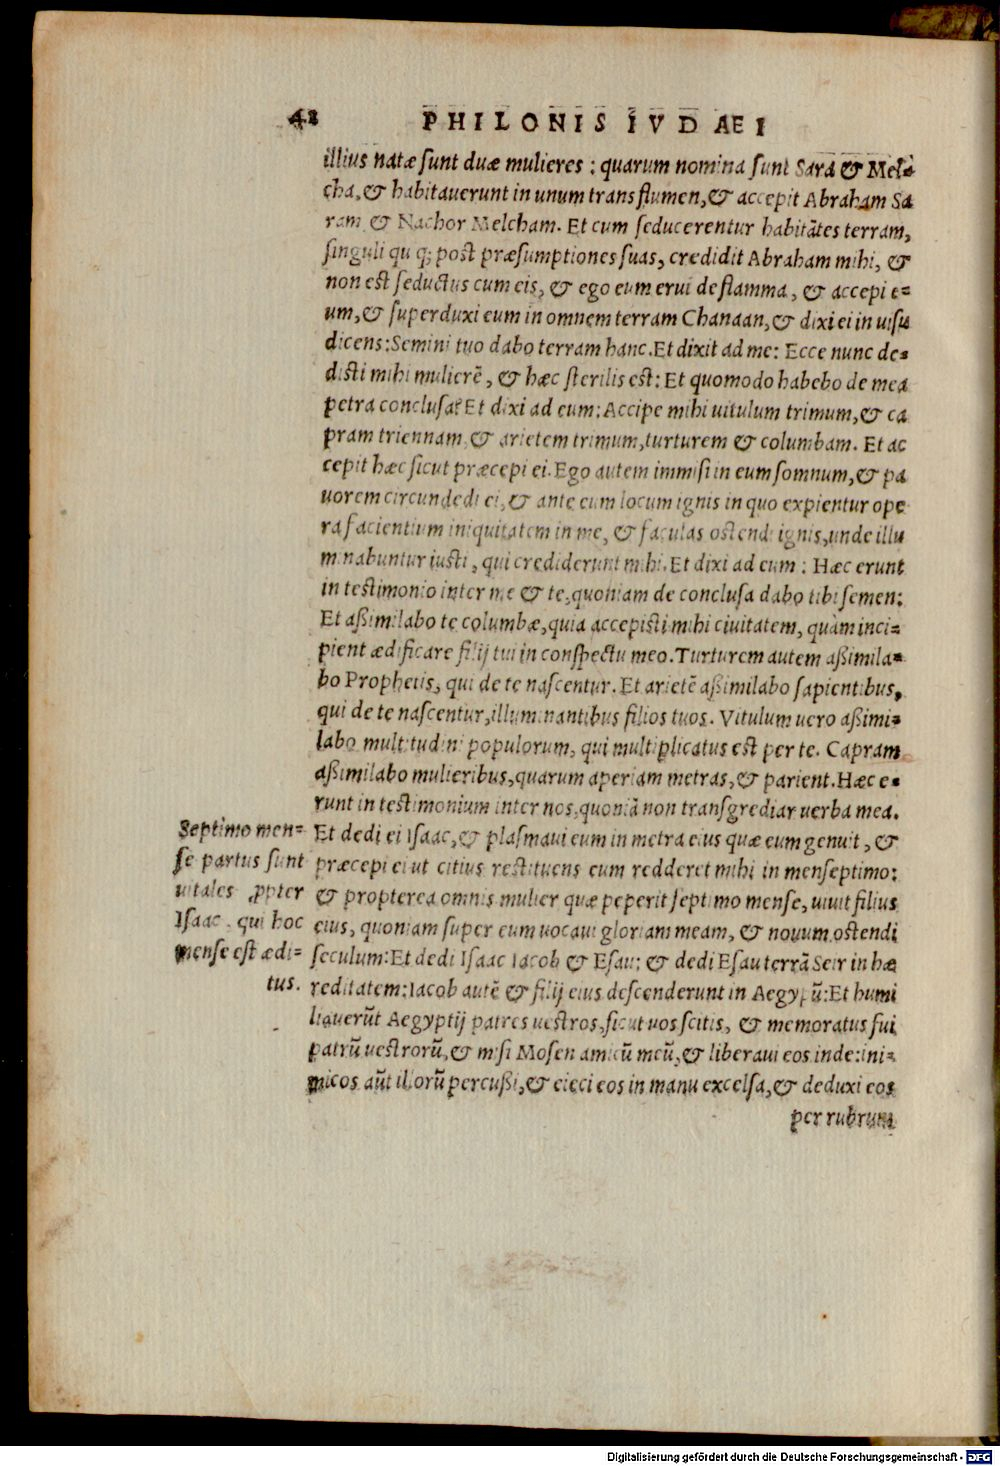 42
PHILONIS IVDAEI
illius natæ sunt duæ mulieres : quarum nomina sunt Sara & Mel-
cha, & habitauerunt in unum trans flumen, & accepit Abraham Sa
ram & Nachor Melcham. Et cum seducerentur habitãtes terram,
singuli qu q; post præsumptiones suas, credidit Abraham mihi, &
non est seductus cum eis, & ego eum erui de flamma, & accepi e-
um, & superduxi eum in omnem terram Chanaan, & dixi ei in uisu
dicens: Semini tuo dabo terram hanc. Et dixit ad me: Ecce nunc de-
disti mihi mulierẽ, & hæc sterilis est: Et quomodo habebo de mea
petra conclusa? Et dixi ad eum: Accipe mihi uitulum trimum, & ca
pram triennam & arietem trimum, turturem & columbam. Et ac
cepit hæc sicut præcepi ei. Ego autem immisi in eum somnum, & pa
uorem circundedi ei, & ante eum locum ignis in quo expientur ope
ra facientium iniquitatem in me, & faculas ostendi ignis, unde illu
minabuntur iusti, qui crediderunt mihi. Et dixi ad eum : Hæc erunt
in testimonio inter me & te, quoniam de conclusa dabo tibi semen:
Et aßimilabo te columbæ, quia accepisti mihi ciuitatem, quàm inci-
pient ædificare filij tui in conspectu meo. Turturem autem aßimila-
bo Prophetis, qui de te nascentur. Et arietẽ aßimilabo sapientibus,
qui de te nascentur, illuminantibus filios tuos. Vitulum uero aßimi-
labo multitudini populorum, qui multiplicatus est per te. Capram
aßimilabo mulieribus, quarum aperiam metras, & parient. Hæc e-
runt in testimonium inter nos, quoniã non transgrediar uerba mea.
Et dedi ei Isaac, & plasmaui eum in metra eius quæ eum genuit, &
præcepi ei ut citius restituens eum redderet mihi in men septimo:
& propterea omnis mulier quæ peperit septimo mense, uiuit filius
eius, quoniam super eum uocaui gloriam meam, & nouum ostendi
seculum: Et dedi Isaac Iacob & Esau: & dedi Esau terrã Seir in hæ
reditatem: Iacob autẽ & filij eius descenderunt in Aegypũ: Et humi
liauerũt Aegyptij patres uestros, sicut uos scitis, & memoratus sui
patrũ uestrorũ, & misi Mosen amicũ meũ, & liberaui eos inde: ini-
micos aũt illorũ percußi, & eieci eos in manu excelsa, & deduxi eos
per rubrum
Septimo men-
se partus sunt
uitales ꝓpter
Isaac, qui hoc
mense est ædi-
tus.
Digitalisierung gefördert durch die Deutsche Forschungsgemeinschaft - DFG